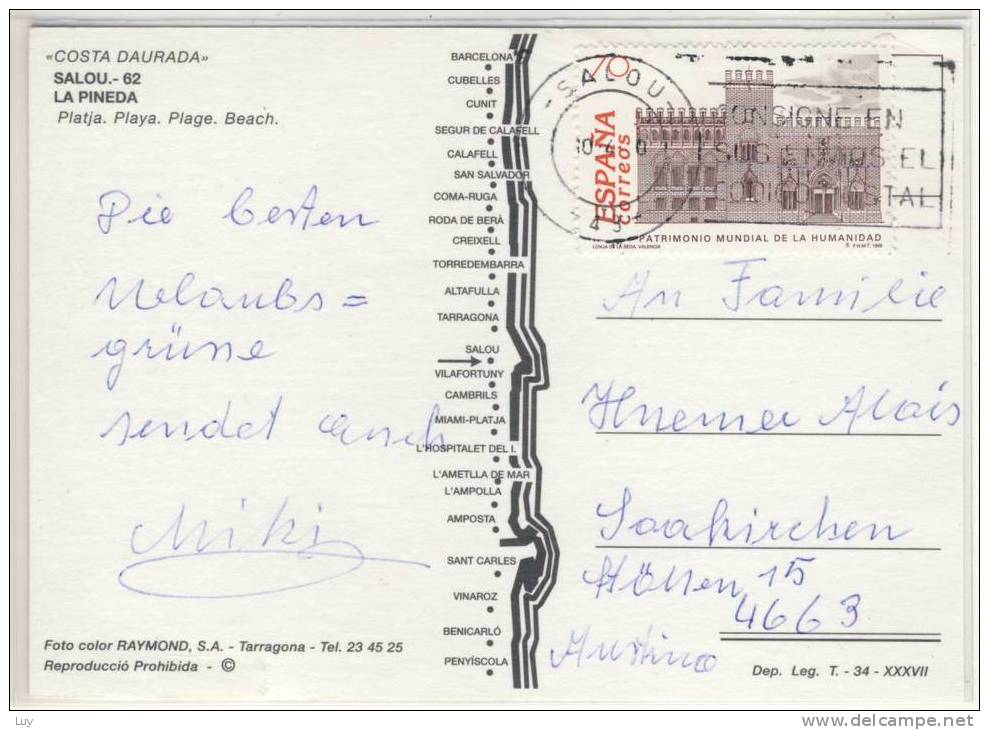 «COSTA DAURADA»
SALOU.- 62
LA PINEDA
Platja. Playa. Plage. Beach.
Die besten
Urlaubs=
grüsse
sendet euch
Miki
Foto color RAYMOND, S.A. - Tarragona - Tel. 23 45 25
Reproducció Prohibida - ©
BARCELONA
CUBELLES
CUNIT
SEGUR DE CALAFELL
CALAFELL
SAN SALVADOR
COMA-RUGA
RODA DE BERÀ
CREIXELL
TORREDEMBARRA
ALTAFULLA
TARRAGONA
SALOU
VILAFORTUNY
CAMBRILS
MIAMI-PLATJA
L'HOSPITALET DEL I.
L'AMETLLA DE MAR
L'AMPOLLA
AMPOSTA
SANT CARLES
VINAROZ
BENICARLÓ
PENYÍSCOLA
70
ESPAÑA
correos
PATRIMONIO MUNDIAL DE LA HUMANIDAD
LONJA DE LA SEDA. VALENCIA
© F.N.M.T. 1999
-SALOU
CONSIGNE EN
SUS ENVIOS EL
CODIGO POSTAL
An Familie
Alois
Laakirchen
15
4663
Austria
Dep. Leg. T. - 34 - XXXVII
Luy
www.delcampe.net